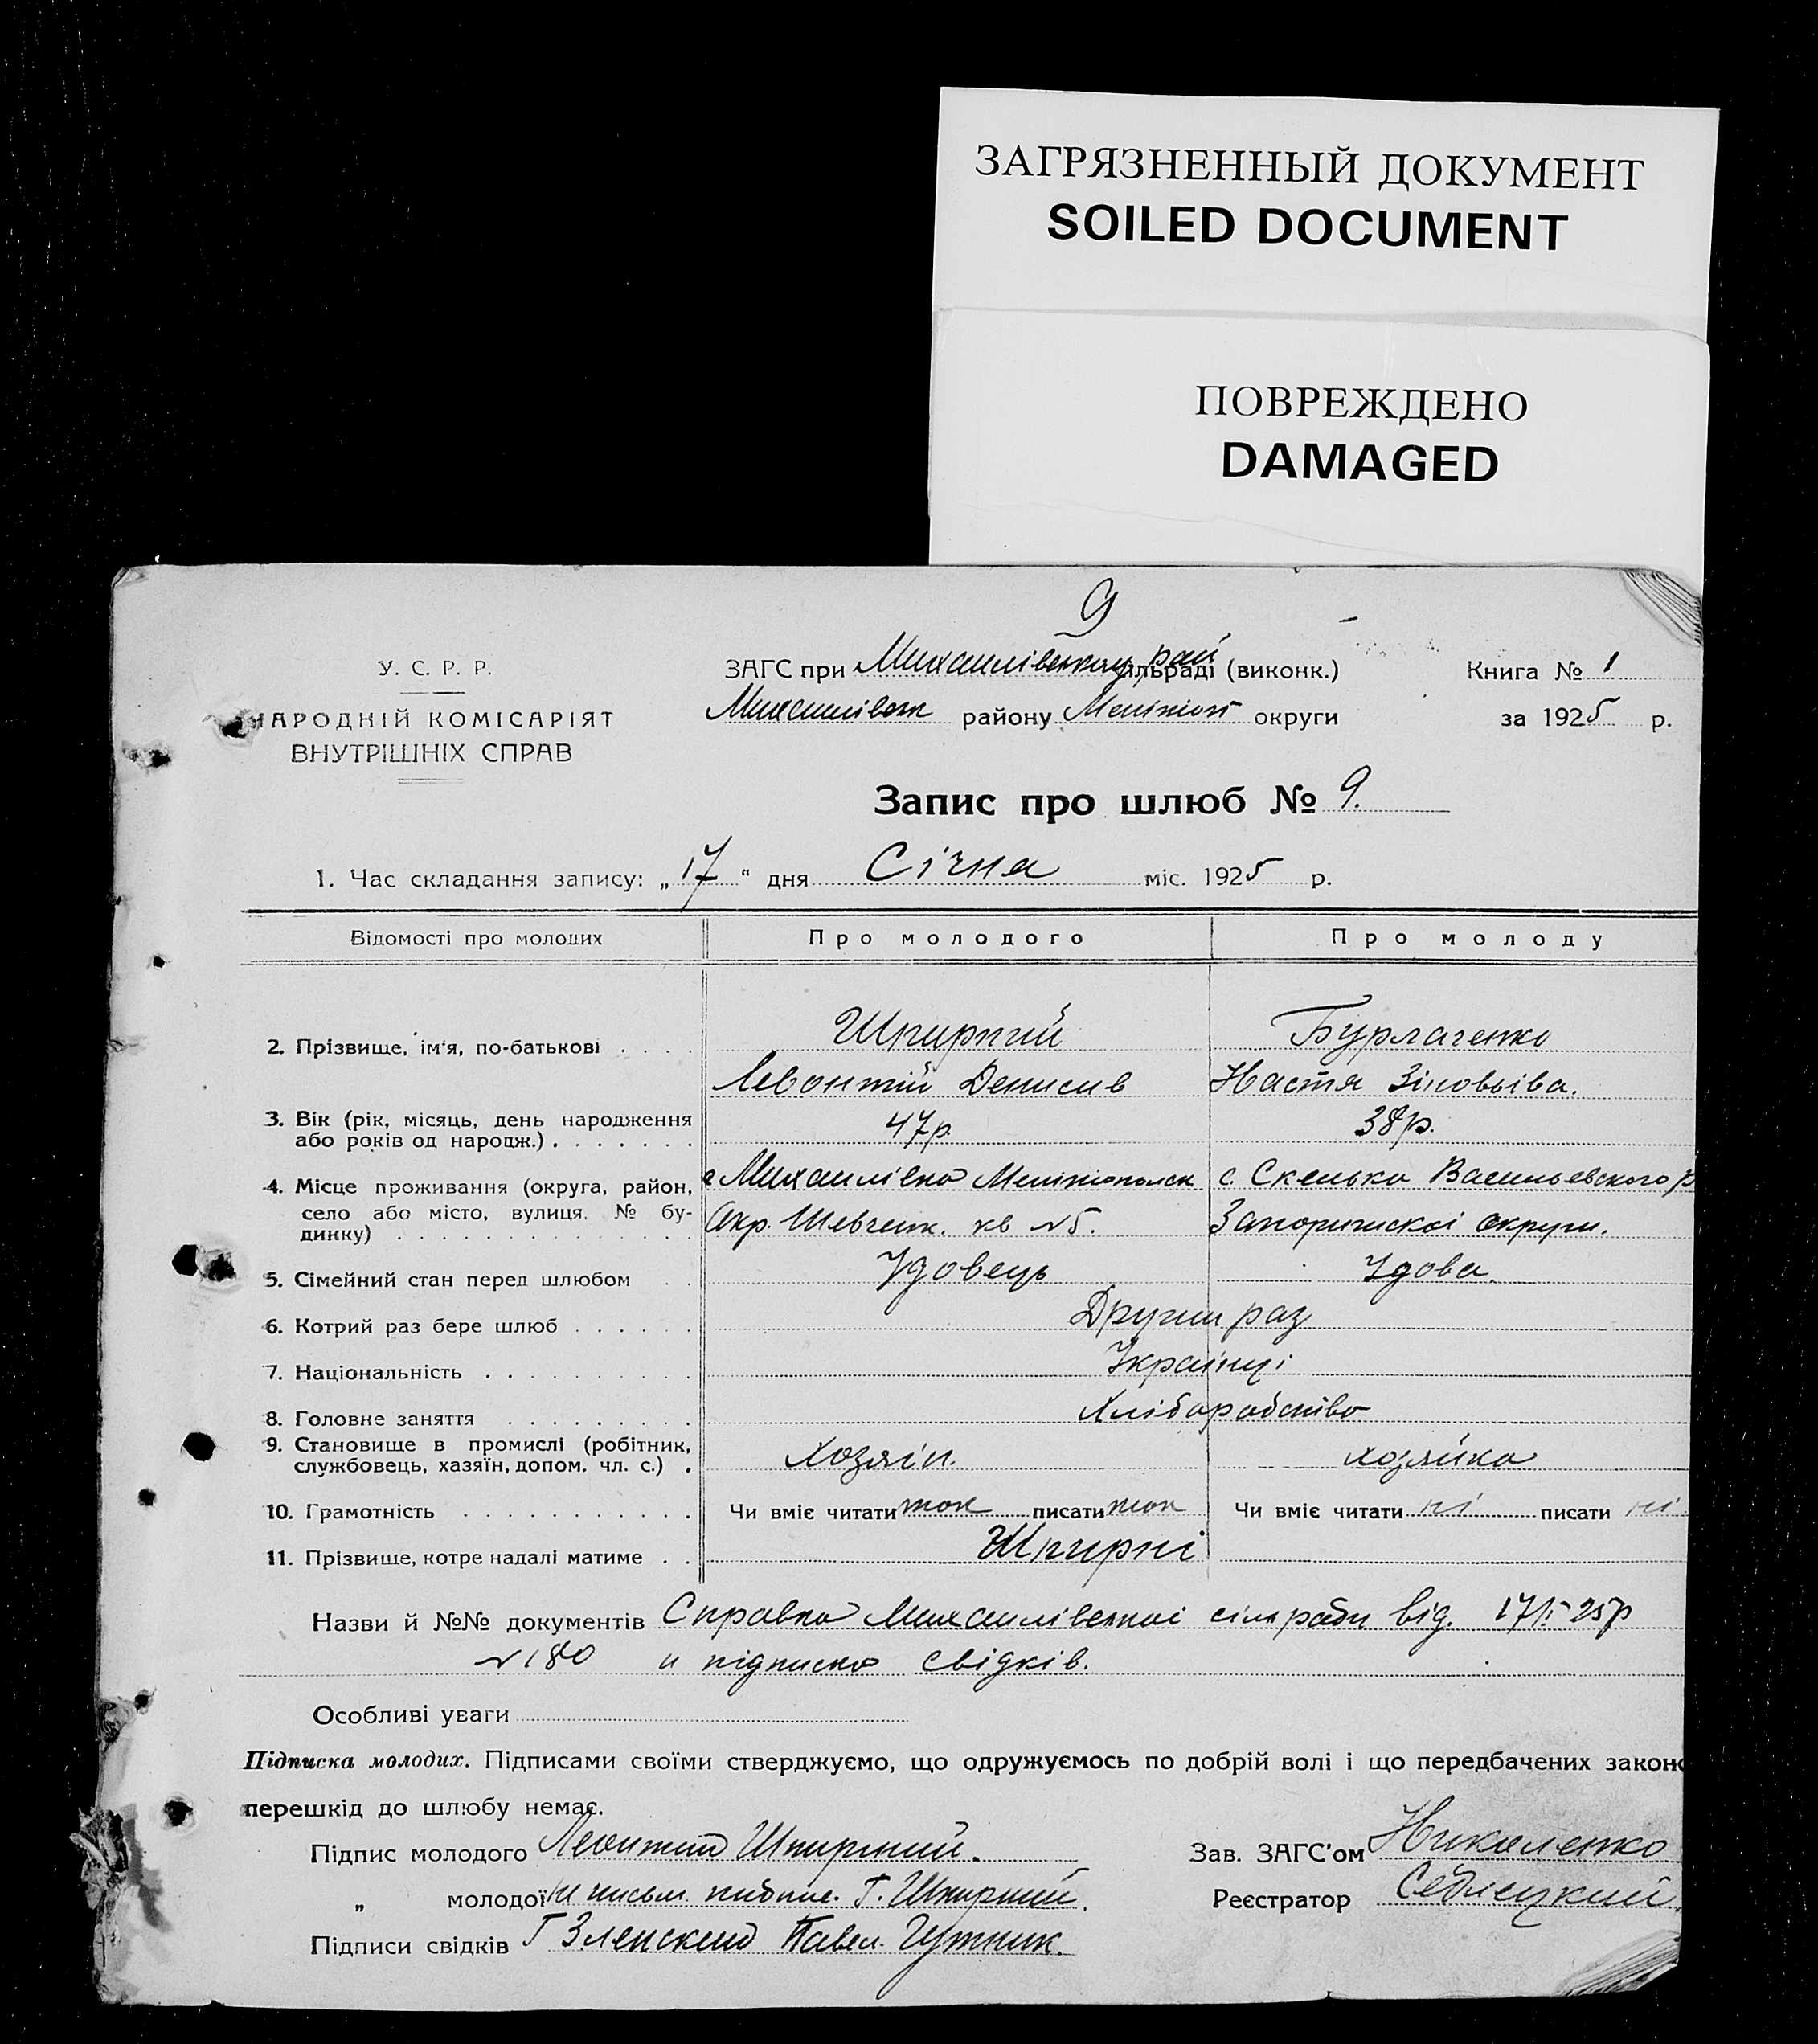 ЗАГРЯЗНЕННЫЙ ДОКУМЕНТ
SOILED DOCUMENT
ПОВРЕЖДЕНО
DAMAGED
9
У. С. Р. Р.
НАРОДНІЙ КОМІСАРІЯТ
ВНУТРІШНІХ СПРАВ
ЗАГС при Михаилівському рай сільраді (виконк.)
Михаилівськ району Мелітоп округи
Книга № 1
за 1925 р.
Запис про шлюб № 9.
1. Час складання запису: „17“ дня Січна міс. 1925 р.
Відомості про молодих Про молодого Про молоду
2. Прізвище, ім'я, по-батькові . . . . Шпирний Бурлаченко
Левонтій Денисив Настя Зіновьіва.
3. Вік (рік, місяць, день народження або років од народж.) . . . . . . . 47р. 38р.
4. Місце проживання (округа, район, село або місто, вулиця, № будинку) . . . с Михаилівка Мелітопольск с. Скелька Васильевского р
Окр. Шевченк. кв №5. Запорижскоі округи.
5. Сімейний стан перед шлюбом . . Удовець Удова.
6. Котрий раз бере шлюб . . . . . . Другий раз
7. Національність . . . . . . . . . . Украінці
8. Головне заняття . . . . . . . . . Хліборобство
9. Становище в промислі (робітник, службовець, хазяїн, допом. чл. с.) . Хозяін. хозяйка
10. Грамотність . . . . . . . . . . . Чи вміє читати так писати так Чи вміє читати ні писати ні
11. Прізвище, котре надалі матиме . . Шпирні
Назви й №№ документів Справка Михаилівскоі сільради від. 17/I-25р
№180 и підписка свідків.
Особливі уваги
Підписка молодих. Підписами своїми стверджуємо, що одружуємось по добрій волі і що передбачених законо
перешкід до шлюбу немає.
Підпис молодого Леонтий Шпирний.
„ молодої Шпирний.
Підписи свідків Павел
Зав. ЗАГС'ом Николенко
Реєстратор